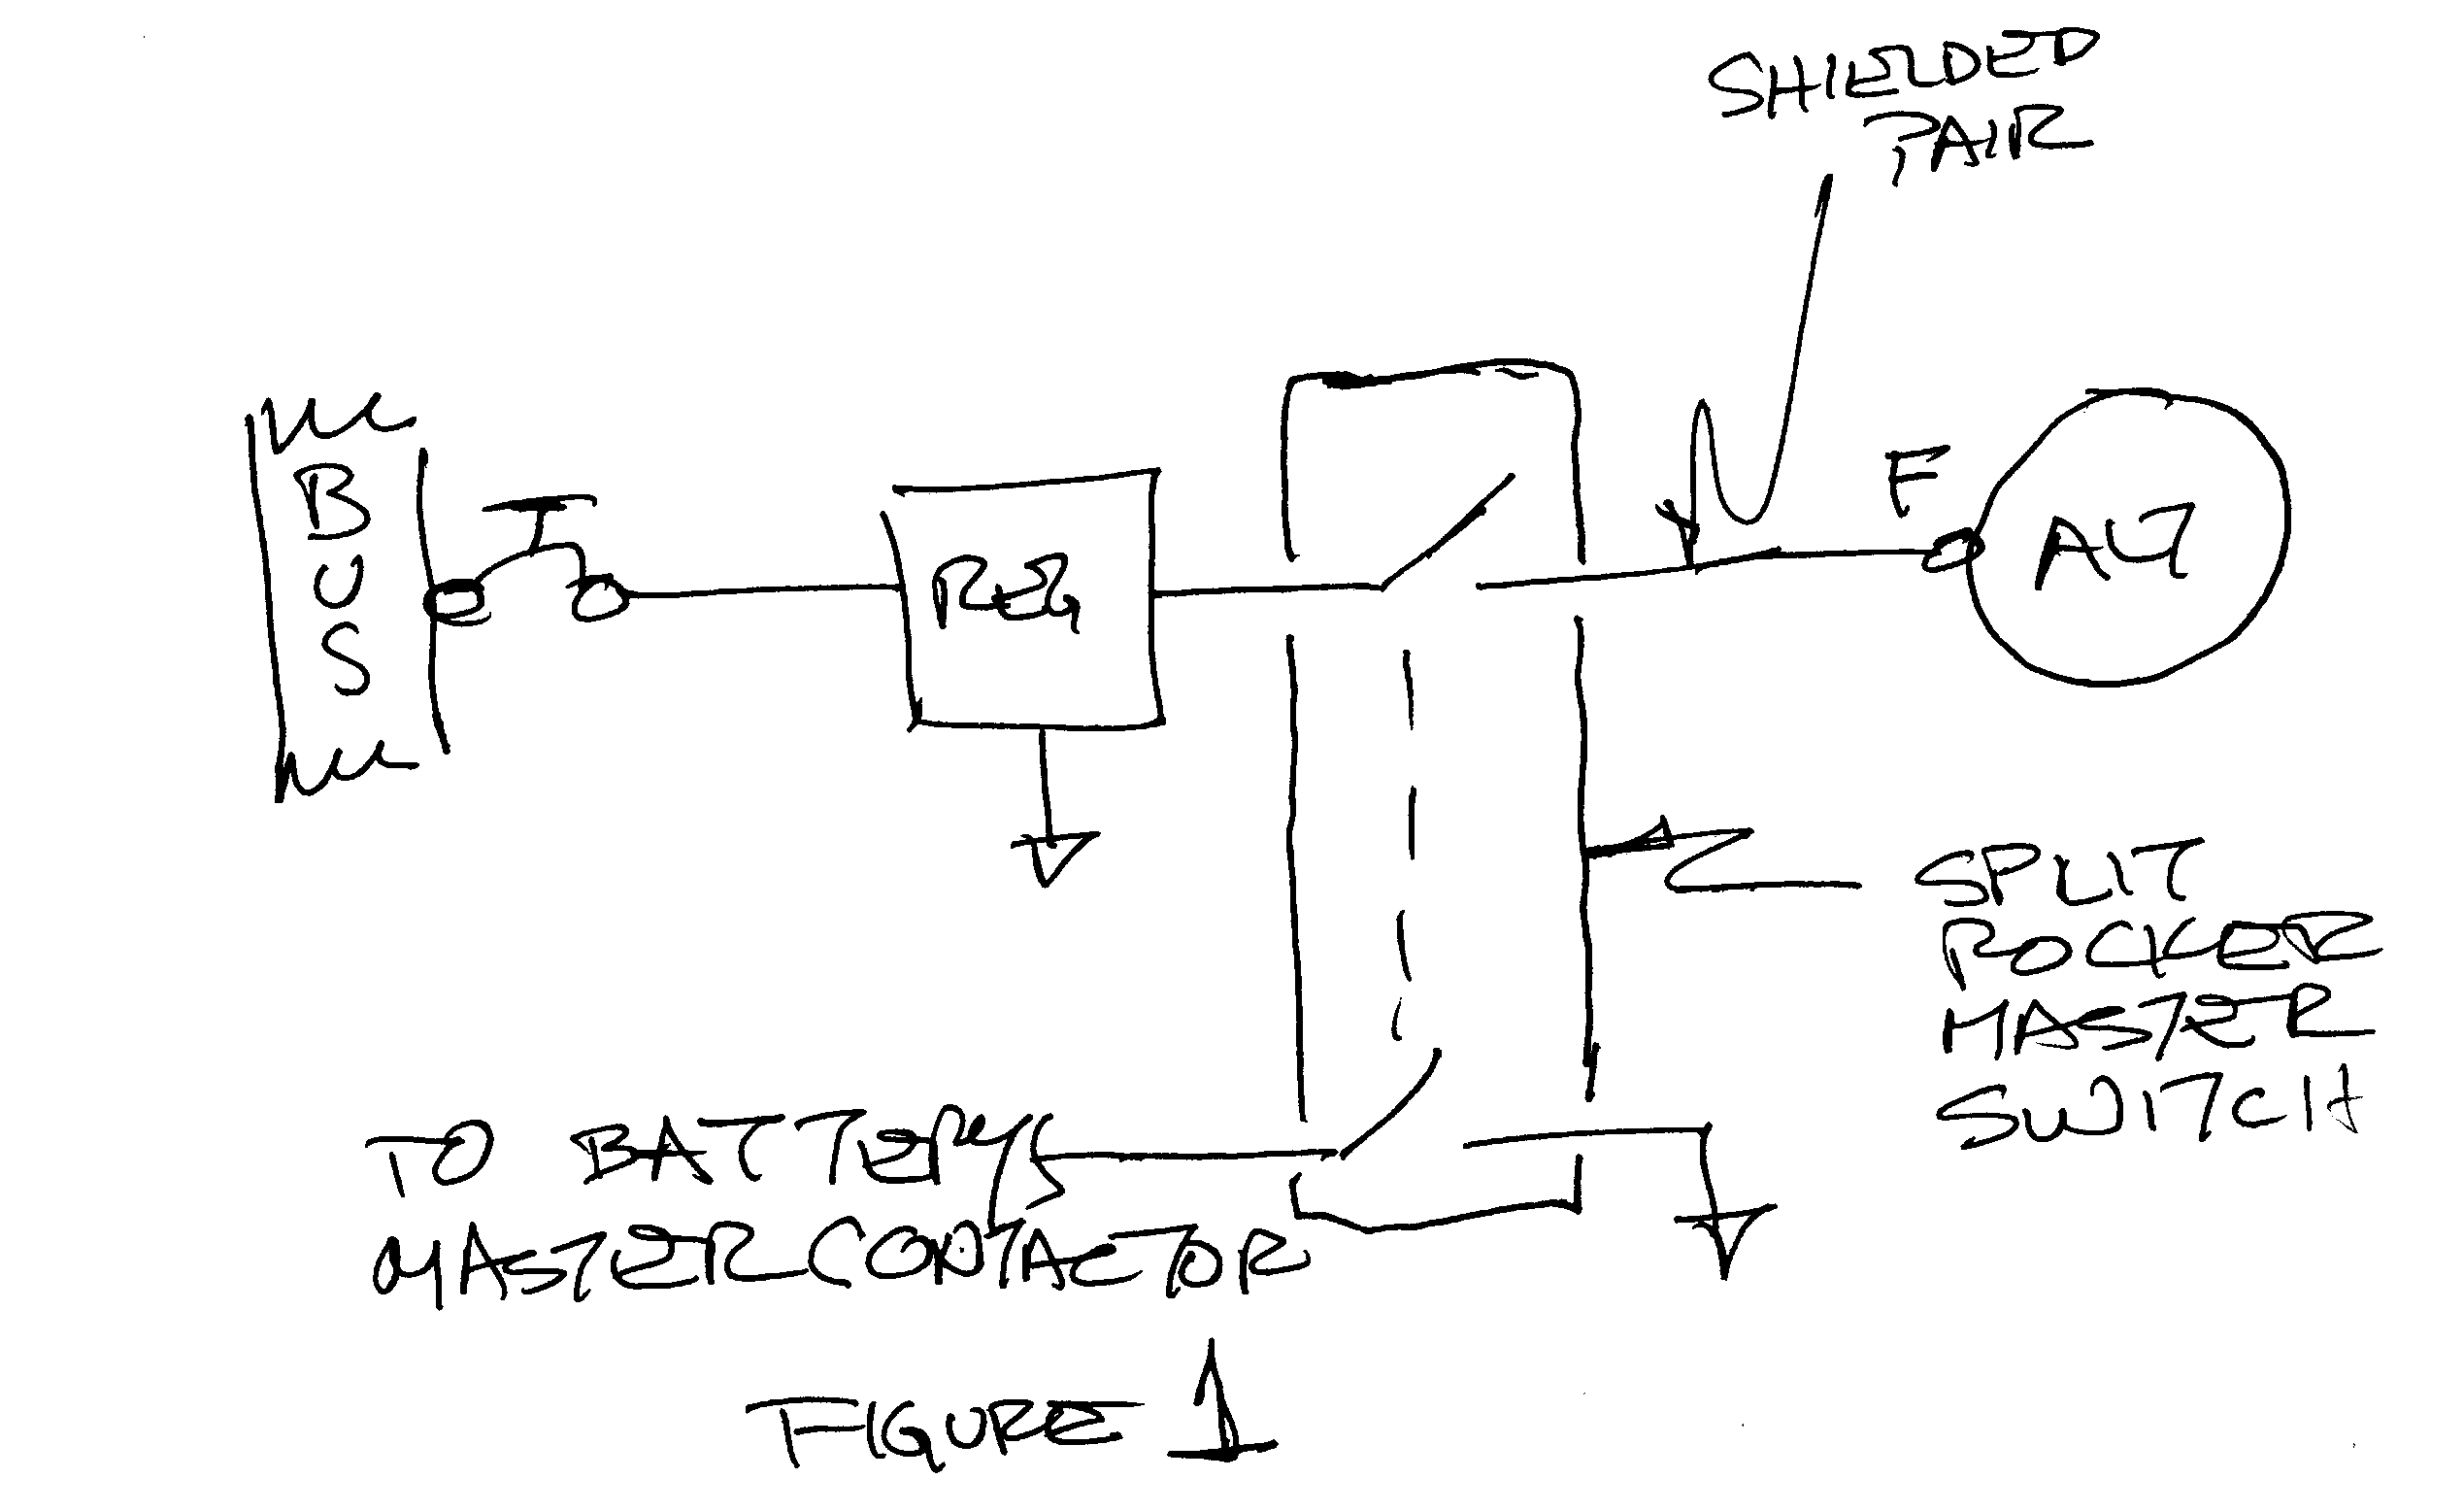 SHIELDED
PAIR
BUS
REG
F
ALT
SPLIT
ROCKER
MASTER
SWITCH
TO BATTERY
MASTER CONTACTOR
FIGURE 1